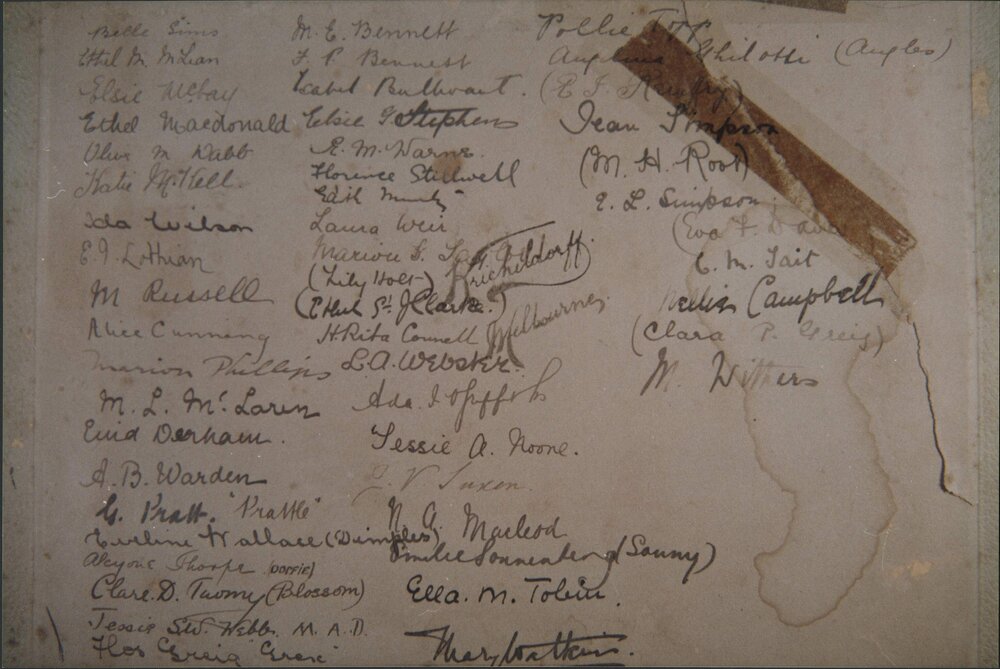 Belle Sims
Ethel M. McLean
Elsie McCay
Ethel Macdonald
Olive M. Nabb
Katie McKell
Ida Wilson
E. I. Lothian
M Russell
Alice Cunning
Marion Phillips
M. L. McLaren
Enid Derham.
A. B. Warden
G. Pratt. "Prattle"
Eveline Wallace (Dimples)
Alcyone Thorpe (DORFIE)
Clare. D. Tuomy (Blossom)
Jessie S.W. Webb. M.A.D.
Flos Greig "Greic"
M. E. Bennett
F. P. Bennett
Isabel Bulhvant.
Elsie G Stephens
E. M. Warne.
Florence Stillwell
Edith
Laura Weir
Marion S.
(Lily Holt)
(Ethel St. J Clarke.)
Krichildorff.
Melbourne,
H Rita Connell
L. A. WEBSTER.
Ada. I Griffith
Jessie A. Noone.
V Tuxen
N. A. Macleod
Emilie Sonnenberg (Sonny)
Ella. M. Tobin.
Mary Watkins.
Pollie Topp
Angelina Philotti (Angles)
(E. J.
Jean Simpson
(M. H. Root)
E. L. Simpson
(Eva
E. M. Tait
Nellie Campbell
(Clara P. Greig)
M. Withers